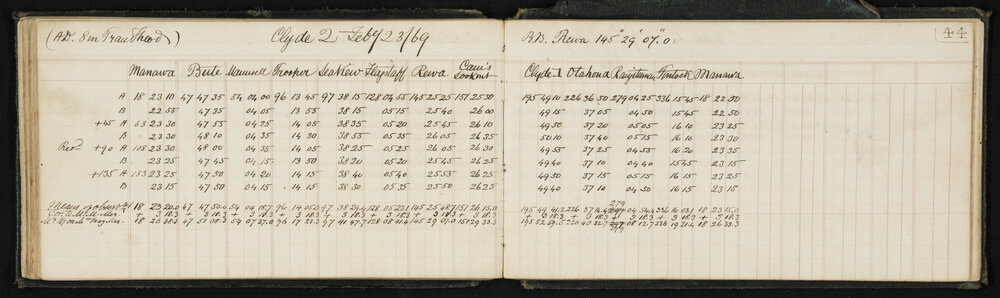 (A.D. 8 in Tran Theod) Clyde 2 Feby 23/69 B.B. Rewa 145° 29' 07".0 44
Manawa Bute Maunsell Trooper Seaview Flagstaff Rewa Cam's Lookout Clyde 1 Otahona Raujitama Tinlock Manawa
A 18 23 10 47 47 35 54 04 00 96 13 45 97 38 15 128 04 55 145 25 25 151 25 30 195 49 10 226 36 50 279 04 25 336 15 45 18 22 50
B 22 55 47 35 04 05 13 55 38 15 05 15 25 40 26 00 49 15 37 05 04 50 15 45 22 50
+45 A 63 23 30 47 55 04 25 14 05 38 35 05 20 25 45 26 10 49 50 37 20 05 05 16 10 23 25
B 23 30 48 10 04 35 14 30 38 55 05 35 26 05 26 35 50 10 37 40 05 25 16 10 23 30
Revd +90 A 108 23 30 48 00 04 35 14 05 38 25 05 25 26 05 26 30 49 55 37 25 04 55 16 20 23 35
B 23 25 47 45 04 15 13 50 38 20 05 20 25 45 26 25 49 40 37 10 04 40 15 45 23 15
+135 A 153 23 25 47 50 04 20 14 15 38 40 05 40 25 55 26 25 49 40 37 15 05 15 16 15 23 25
B 23 15 47 50 04 15 14 15 38 30 05 35 25 50 26 25 49 40 37 10 04 50 16 15 23 15
18 23 20.0 47 47 50.0 54 04 18.7 96 14 05.0 97 38 29.4 128 05 23.1 145 25 48.7 151 26 15.0 195 49 41.2 226 37 14.4 279 04 54.4 336 16 03.1 18 23 15.0
+ 3 18.3 + 3 18.3 + 3 18.3 + 3 18.3 + 3 18.3 + 3 18.3 + 3 18.3 + 3 18.3 + 3 18.3 + 3 18.3 + 3 18.3 + 3 18.3 + 3 18.3
18 26 38.3 47 51 08.3 54 07 37.0 96 17 23.3 97 41 47.7 128 08 41.4 145 29 07.0 151 29 33.3 195 52 59.5 226 40 32.7 279 08 12.7 336 19 21.4 18 26 33.3